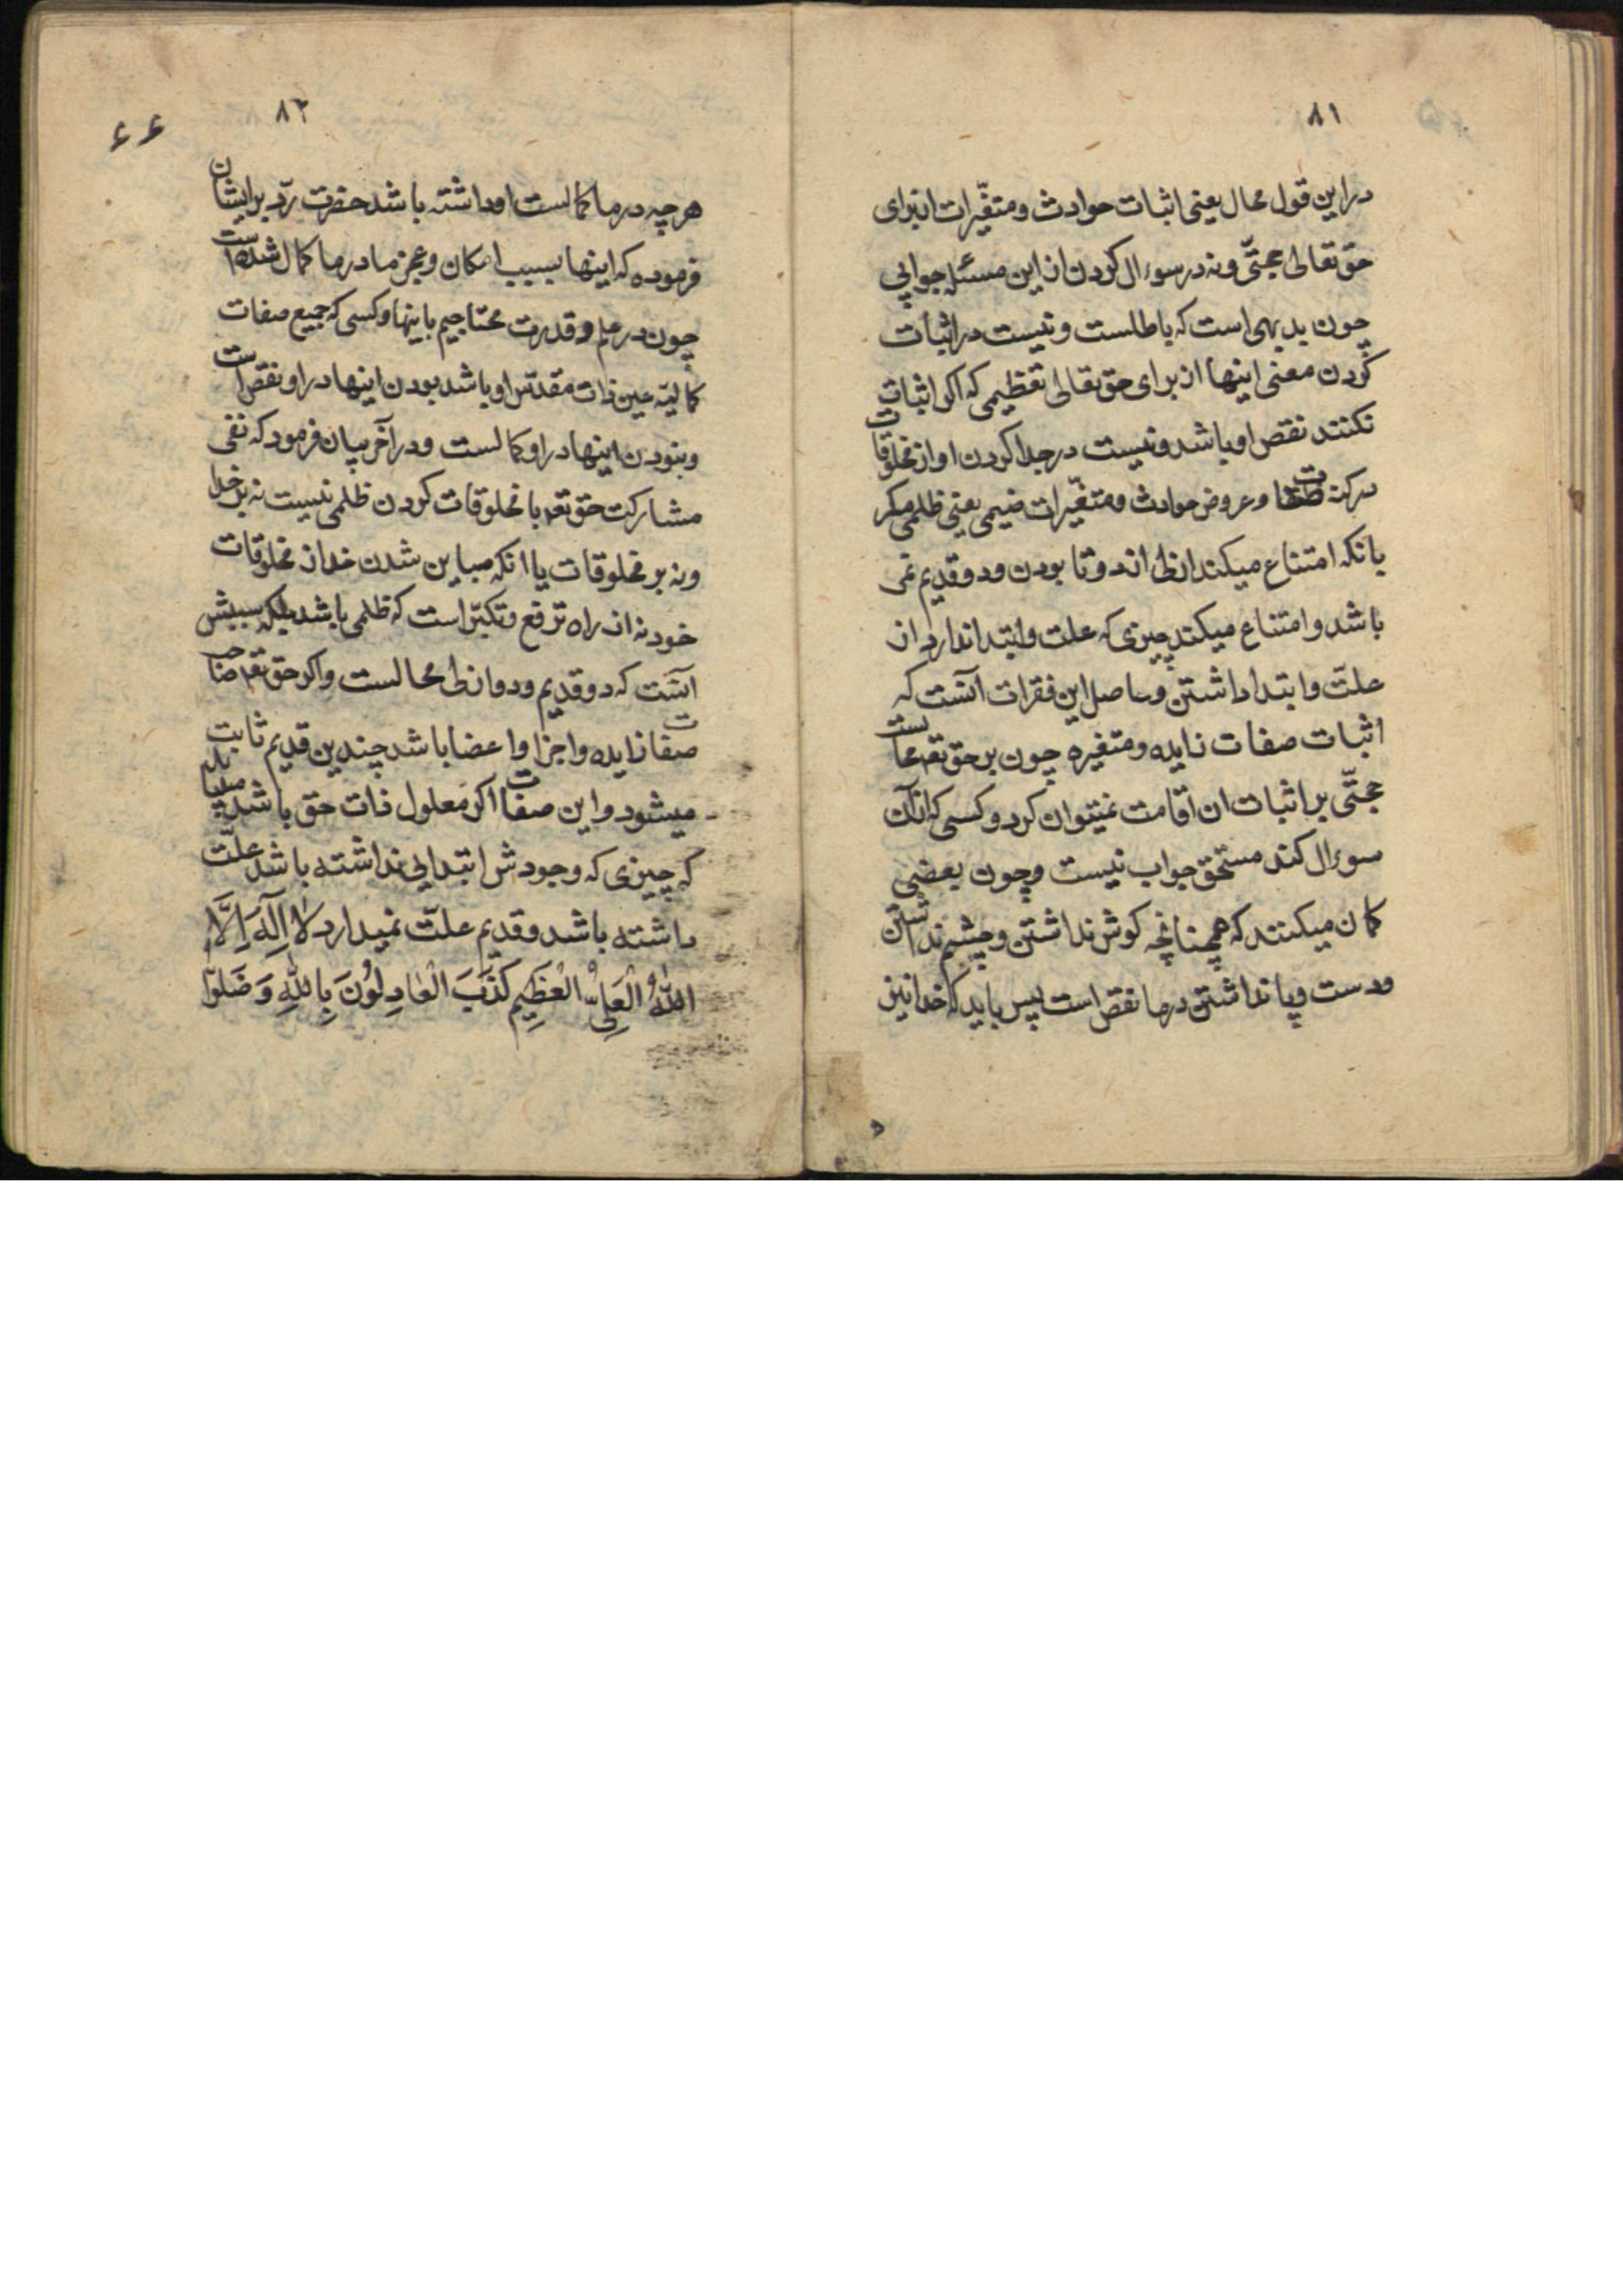 ۸۱
در این قول محال یعنی اثبات حوادث و متغیّرات از برای
حق تعالی حجتّی و نه در سوءال کردن از این مسئله جوابی
چون بدیهی است که باطلست و نیست در اثبات
کردن معنی اینها از برای حق تعالی تعظیمی که اکر اثبات
نکنند نقص او باشد و نیست در جدا کردن او از مخلوقات
در و عروض حوادث و متغیّرات ضیمی یعنی ظلمی مکر
بانکه امتناع میکند ازلی از دو تا بودن و دو قدیم نمی
باشد و امتناع میکند چیزی که علت و ابتدا ندارد از
علتّ و ابتدا داشتن و حاصل این فقرات آنست که
اثبات صفات زایده و متغیره چون بر حق تعه محالست
حجتّی بر اثبات ان اقامت نمیتوان کرد و کسی که از آن
سوءال کند مستحق جواب نیست و چون بعضی
کمان میکنند که همچنانچه کوش نداشتن و چشم نداشتن
و دست و پا نداشتن در ما نقص است پس باید که خدا نیز
۸۲
۶۶
هر چه در ما کمالست او داشته باشد حضرت ردّ بر ایشان
فرموده که اینها بسبب امکان و عجز ما در ما کمال شده است
چون در علم و قدرت محتاجیم باینها و کسی که جمیع صفات
کمالیّه عین ذات مقدّس او باشد بودن اینها در او نقص است
و نبودن اینها در او کمالست و در آخر بیان فرمود که نفی
مشارکت حق تعه با مخلوقات کردن ظلمی نیست نه بر خدا
و نه بر مخلوقات یا انکه مباین شدن خدا از مخلوقات
خود نه از راه ترفع و تکبّر است که ظلمی باشد بلکه سببش
آنست که دو قدیم و دو ازلی محالست و اکر حق تعه صاحب
صفات زایده و اجزا و اعضا باشد چندین قدیم ثابت
میشود و این صفات اکر معلول ذات حق باشد
که چیزی که وجودش ابتدایی نداشته باشد علتّ
داشته باشد و قدیم علتّ نمیدارد لَا اِلٰهَ اِلَّا
اللّٰهُ الْعَلِیُّ الْعَظِیمِ کَذَبَ الْعَادِلُونَ بِاللّٰهِ وَ ضَلُّوا